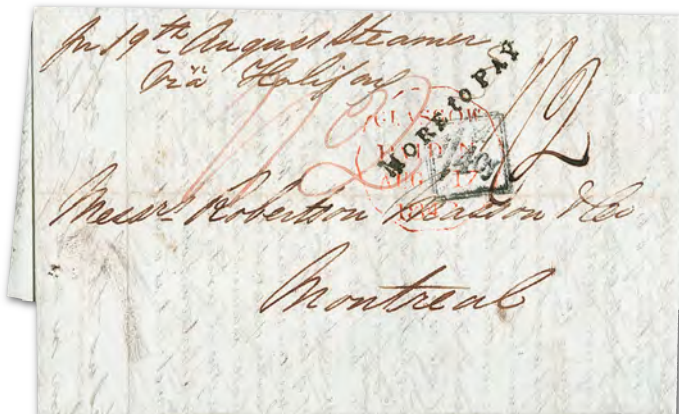 pr 19th August Steamer
via Halifax
1/2
MORE to PAY
1/2
GLASGOW
AUG 17
Messrs Robertson Masson & Co
Montreal